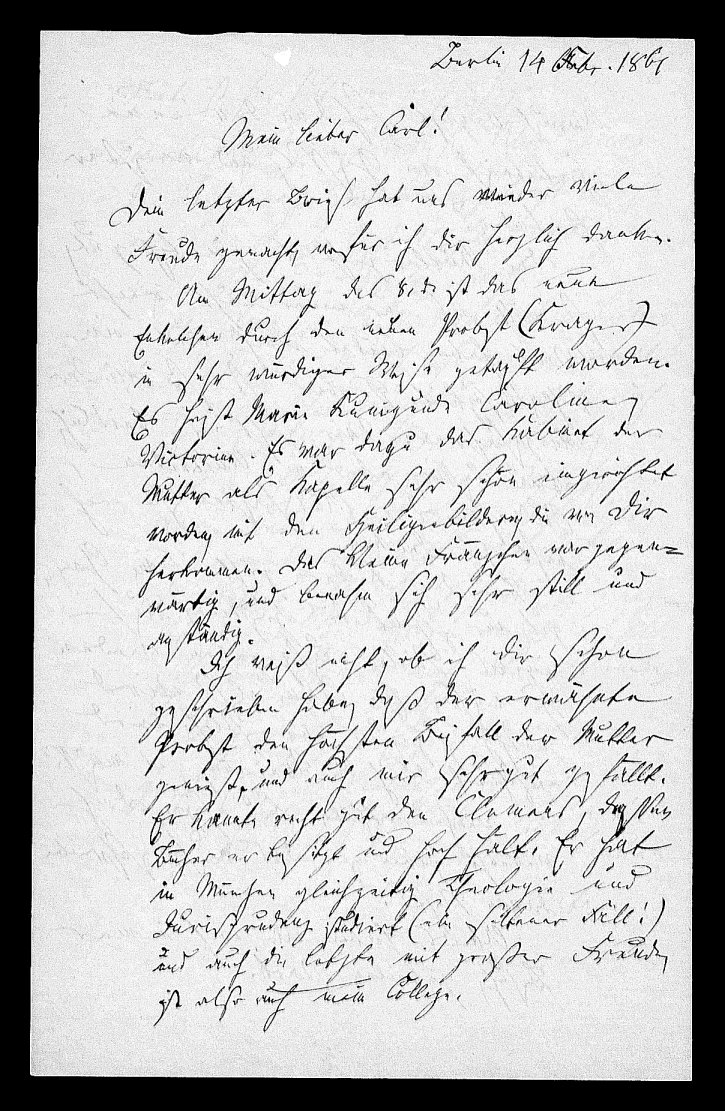 Berlin 14 Febr. 1861
Mein lieber Carl!
Dein letzter Brief hat uns wieder viele
Freude gemacht, wofür ich dir herzlich danke.
Am Mittag des 8. d. ist das neue
Enkelchen durch den neuen Probst (Krager)
in sehr würdiger Weise getauft worden.
Es heist Marie Kunigunde Caroline
Victorine. Es war dazu das Kabinet der
Mutter als Kapelle sehr schön eingerichtet
worden, mit den Heiligenbildern, die von Dir
herkommen. Das kleine Fränzchen war gegen=
wärtig, und benahm sich sehr still und
anständig.
Ich weiß nicht, ob ich dir schon
geschrieben habe, daß der erwähnte
Probst den höchsten Beifall der Mutter
genießt, und auch mir sehr gut gefällt.
Er kannte recht gut den Clemens, dessen
Bücher er besitzt und hoch hält. Er hat
in München gleichzeitig Theologie und
Jurisprudenz studiert (ein seltener Fall!)
und auch die letzte mit großer Freude,
ist also auch mein College.